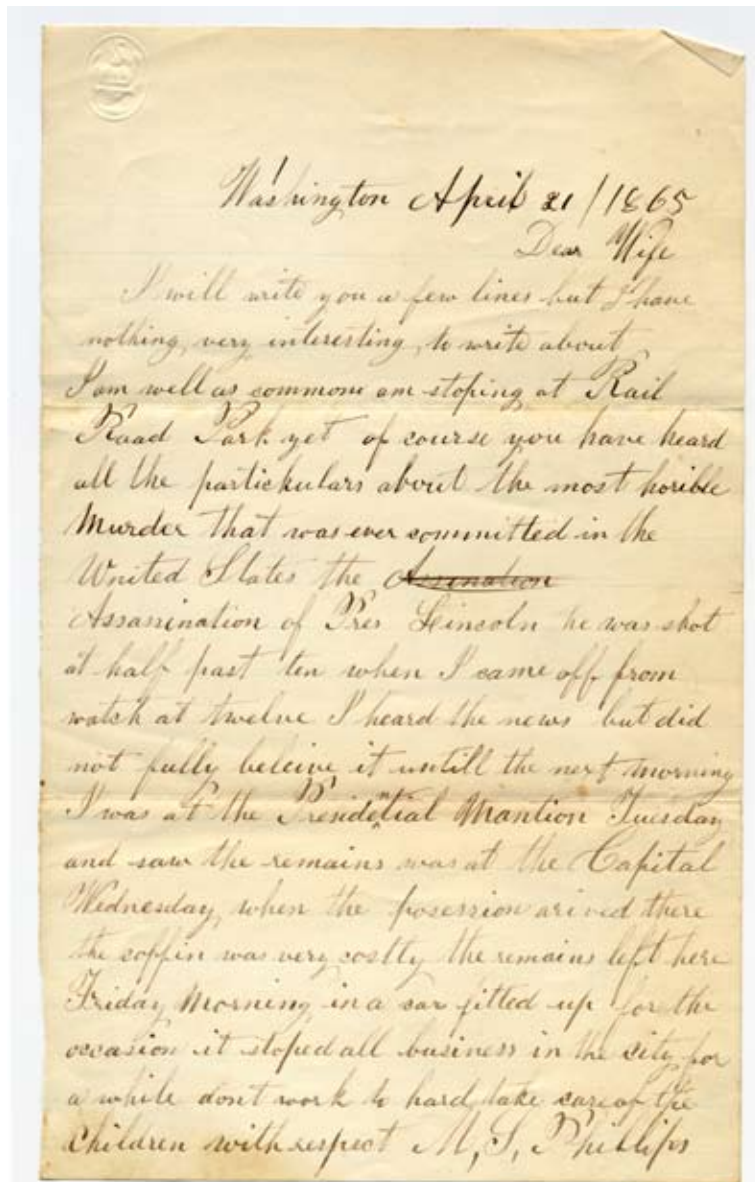 Washington April 21/1865
Dear Wife
I will write you a few lines but I have
nothing very interesting to write about
I am well as commone am stoping at Rail
Road Park yet of course you have heard
all the partickulars about the most horible
Murder that was ever committed in the
United States the Assination
Assassination of Pres Leincoln he was shot
at half past ten when I came off from
watch at twelve I heard the news but did
not fully beleive it untill the next morning
I was at the Presidential Mantion Tuesday
and saw the remains was at the Capital
Wednesday when the posession arived there
the coffin was very costly the remains left here
Friday Morning in a car fitted up for the
occasion it stoped all business in the city for
a while dont work to hard take care of the
Children with respect M, S, Phillips